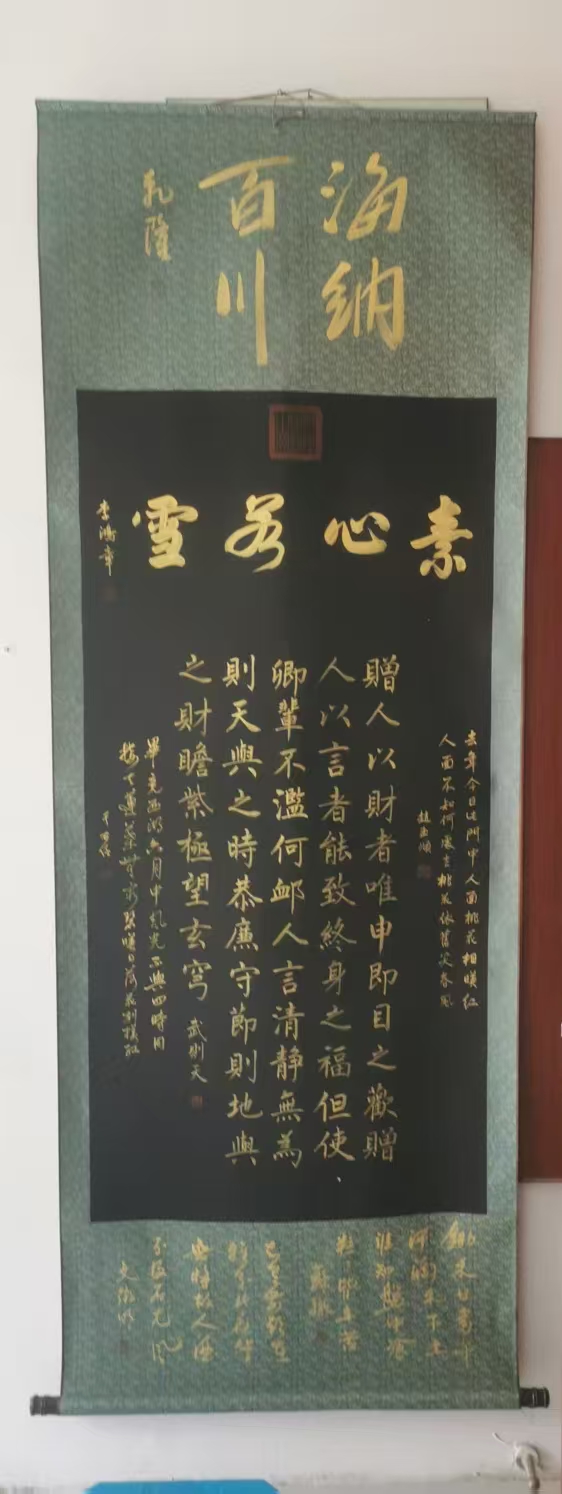 海纳
百川
乾隆
素心若雪
李鴻章
去年今日此門中人面桃花相映紅
人面不知何處去桃花依舊笑春風
趙孟頫
贈人以財者唯申即目之歡贈
人以言者能致終身之福但使
卿輩不濫何邺人言清靜無為
則天與之時恭廉守節則地與
之財瞻紫極望玄穹
武則天
畢竟西湖六月中風光不與四時同
接天蓮葉無窮碧映日荷花別樣紅
鋤禾日當午
汗滴禾下土
誰知盤中餐
粒粒皆辛苦
文徵明